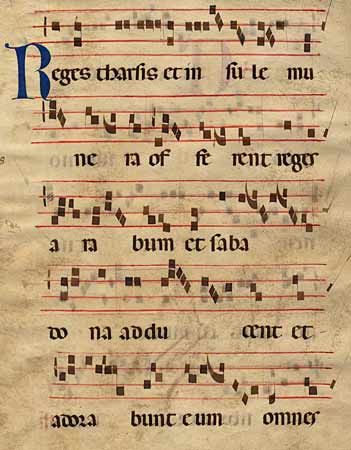 Reges tharsis et in su le mu
ne ra of fe rent reges
a ra bum et saba
do na addu cent et
adora bunt eum omnes